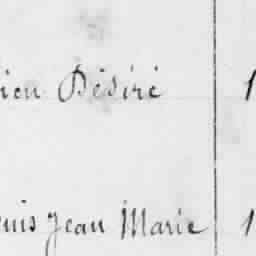 ien Désiré 1
uis Jean Marie 1